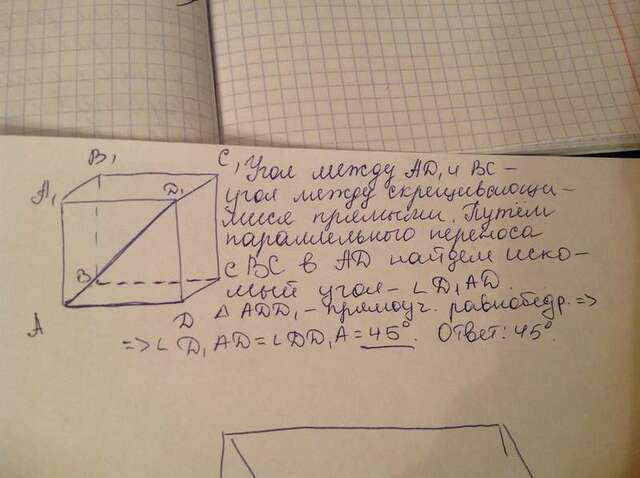 B₁
C₁
A₁
D₁
B
C
A
D
Угол между AD₁ и BC –
угол между скрещивающи-
мися прямыми. Путём
параллельного переноса
BC в AD найдем иско-
мый угол – ∠D₁AD.
△ ADD₁ – прямоуг. равнобедр. =>
=> ∠D₁AD = ∠DD₁A = 45°. Ответ: 45°.